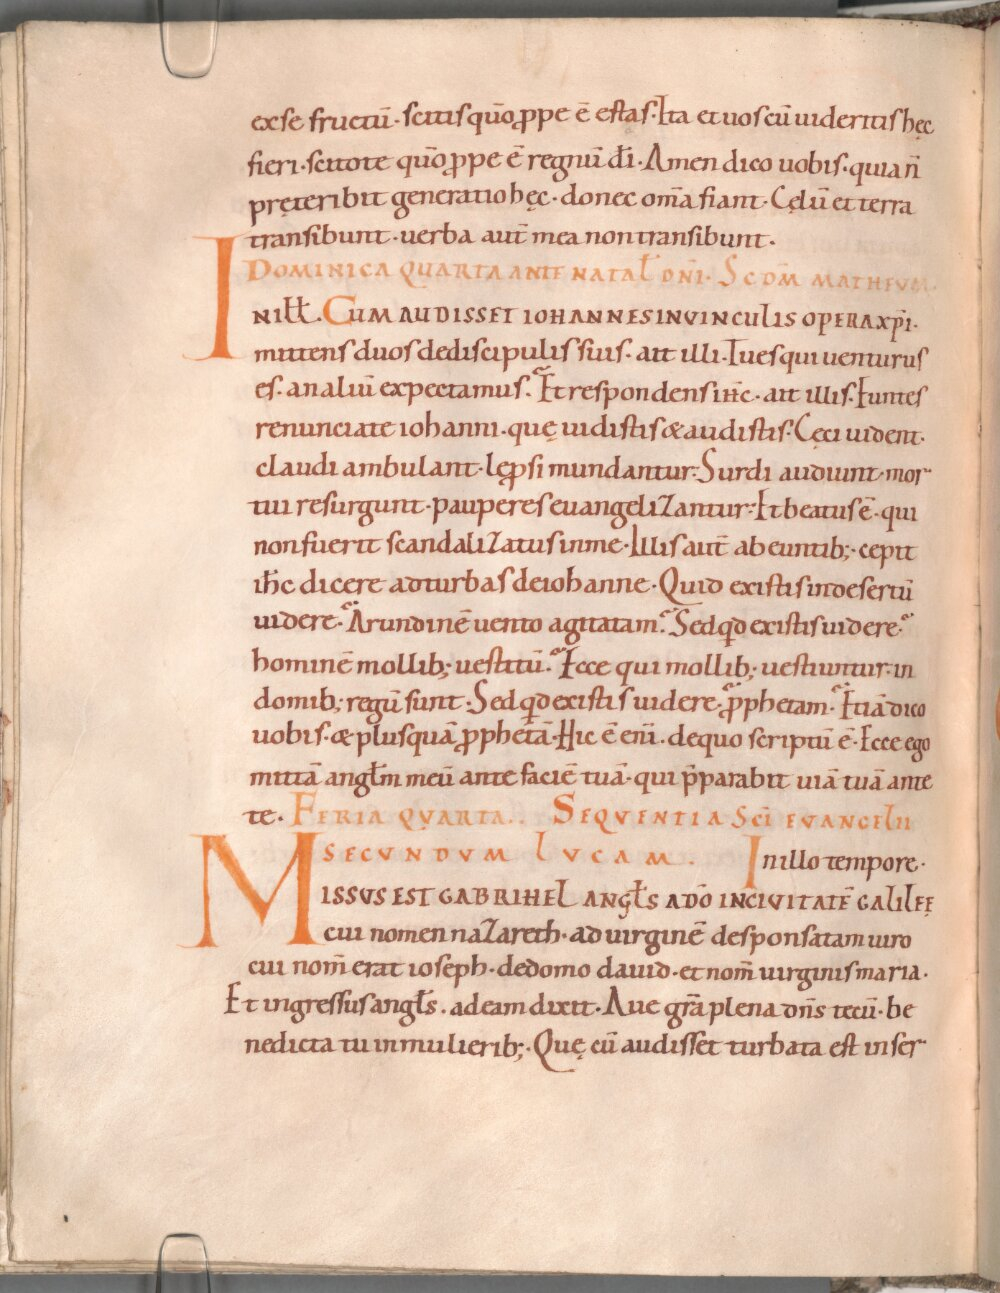 exse fructū· scitis qm̄ ꝓpe ē estas· Ita et uos cū uideritis hęc
fieri· scitote qm̄ ꝓpe ē regnū dī· Amen dico uobis· quia ñ
pręteribit generatio hęc· donec om̄a fiant· Cęlū et terra
transibunt· uerba aut̄ mea non transibunt·
DOMINICA QUARTA ANTE NATAL̄ DN̄I· SCDM̄ MATHEUM·
IN ILL̄· CUM AUDISSET IOHANNES IN UINCULIS OPERA XP̄I·
mittens duos de discipulis suis· ait illi· Tu es qui uenturus
es· an aliū expectamus· Et respondens ih̄c· ait illis· Euntes
renunciate iohanni· quę uidistis & audistis· Cęci uident·
claudi ambulant· leprosi mundantur· Surdi audiunt· mor
tui resurgunt· pauperes euangelizantur· Et beatus ē· qui
non fuerit scandalizatus in me· Illis aut̄ abeuntib;· cepit
ih̄c dicere ad turbas de iohanne· Quid existis in desertū
uidere· Arundinē uento agitatam· Sed qd̄ existis uidere·
hominē mollib; uestitū· Ecce qui mollib; uestiuntur· in
domib; regū sunt· Sed qd̄ existis uidere· ꝓphetam· Etiā dico
uobis· & plusquā ꝓphetā· Hic ē eni̅· de quo scriptū ē· Ecce ego
mittā angl̄m meū ante faciē tuā· qui p̄parabit uiā tuā ante
te· FERIA QUARTA· SEQUENTIA SCI̅ EUANGELII
SECUNDUM LUCAM· In illo tempore·
MISSUS EST GABRIHEL ANGL̄S A DŌ IN CIUITATĒ GALILEĘ
cui nomen nazareth· ad uirginē desponsatam uiro
cui nom̄ erat ioseph· de domo dauid· et nom̄ uirginis maria·
Et ingressus angl̄s· ad eam dixit· Aue gr̄a plena dn̄s tecū· be
nedicta tu in mulierib;· Quę cū audisset turbata est in ser